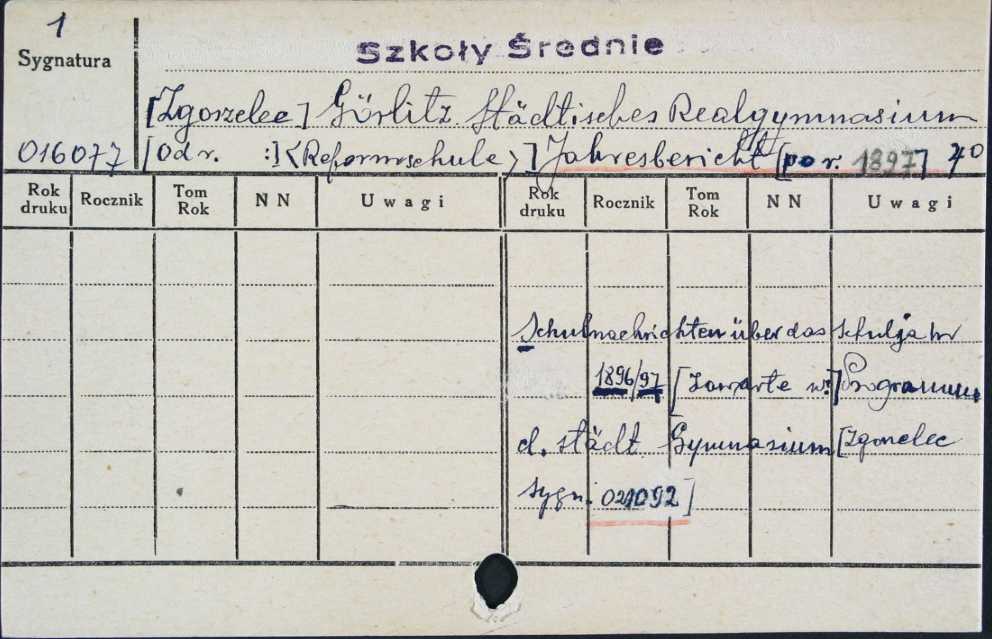 1
Sygnatura
Szkoły Średnie
[Zgorzelec] Görlitz. Städtisches Realgymnasium
016077 [od r. :] <Reformschule> ] Jahresbericht [por. 1897] 40
Rok druku Rocznik Tom Rok NN Uwagi Rok druku Rocznik Tom Rok NN Uwagi
Schulnachrichten über das Schuljahr
1896/97 [zawarte w:] Programm
d. städt Gymnasium [Zgorzelec
sygn. 021092]